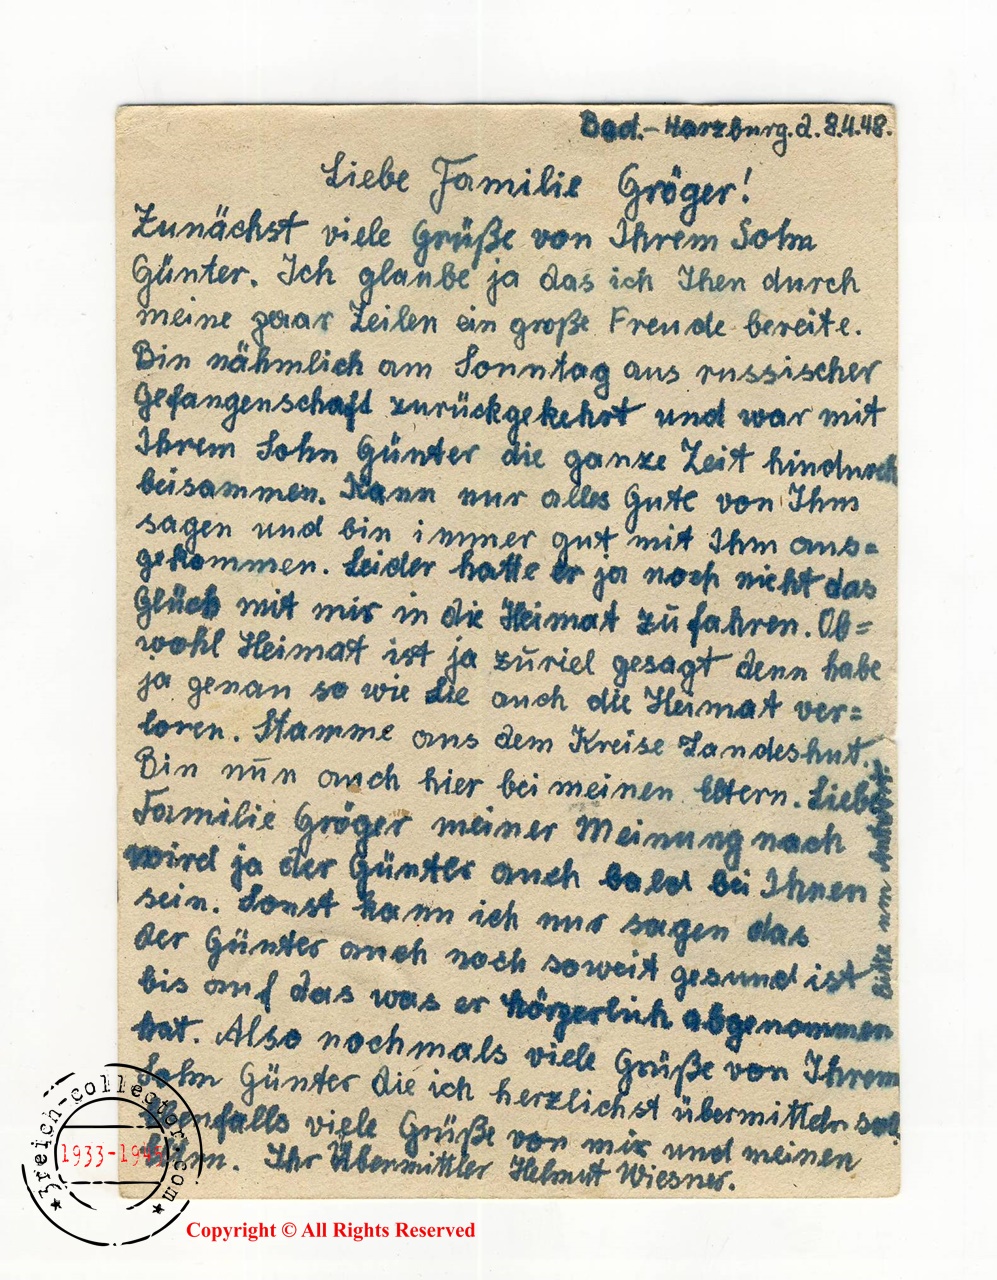 Bad.-Harzburg.d.8.4.48.
Liebe Familie Gröger!
Zunächst viele Grüße von Ihrem Sohn
Günter. Ich glaube ja das ich Ihen durch
meine paar Zeilen ein große Freude bereite.
Bin nähmlich am Sonntag aus russischer
Gefangenschaft zurückgekehrt und war mit
Ihrem Sohn Günter die ganze Zeit hindurch
beisammen. Kann nur alles Gute von Ihm
sagen und bin immer gut mit Ihm aus=
gekommen. Leider hatte er ja noch nicht das
Glück mit mir in die Heimat zu fahren. Ob=
wohl Heimat ist ja zuviel gesagt denn habe
ja genau so wie Sie auch die Heimat ver=
loren. Stamme aus dem Kreise Landeshut.
Bin nun auch hier bei meinen Eltern. Liebe
Familie Gröger meiner Meinung nach
wird ja der Günter auch bald bei Ihnen
sein. Sonst kann ich nur sagen das
der Günter auch noch soweit gesund ist
bis auf das was er körperlich abgenommen
hat. Also nochmals viele Grüße von Ihrem
Sohn Günter die ich herzlichst übermitteln soll
ebenfalls viele Grüße von mir und meinen
Eltern. Ihr Übermittler Helmut Wiesner.
bitte um Antwort
3reich-collector.com
1933-1945
Copyright © All Rights Reserved